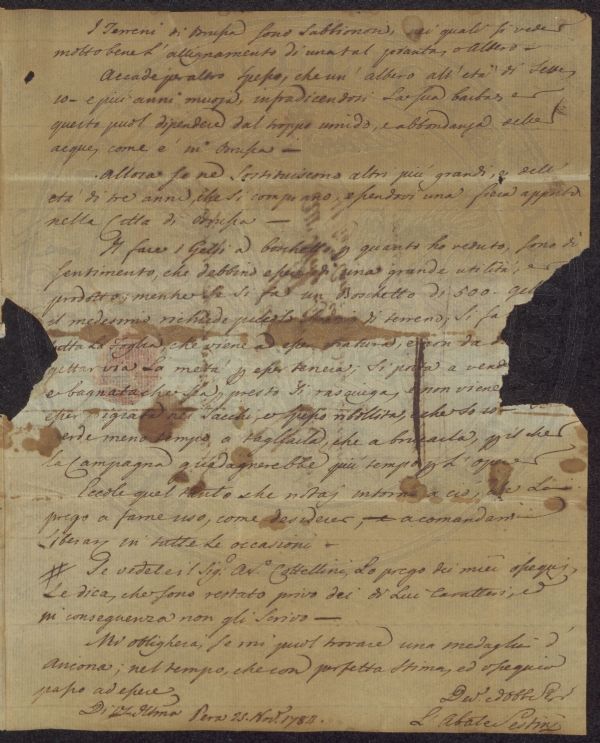 I Terreni di Brusa sono Sabbionosi, nei quali si vede
molto bene l'allignamento di una tal pianta, o Albero -
Accade per altro spesso, che un' albero all' età di Sette
io- e più anni muoja, infradicendosi la sua barba, e
questo puol dipendere dal troppo umido, e abbondanza delle
acque, come è in Brusa -
Allora se ne Sostituiscono altri più grandi, e dell'
età di tre anni, che si comprano, essendovi una fiera apposta
nella Città di Brusa -
Il fare i Gelsi a boschetto, p quanto ho veduto, sono di
sentimento, che debbino essere di una grande utilità, e
prodotto; mentre se si fa un Boschetto di 500- Gel
il medesimo richiede piccolo di terreno, si fa
tutta la foglia, che viene ad esser matura, e non da
gettar via la metà p esser tenera; si porta a vend
e bagnata che sia, presto si rasciuga, e non viene
esser nei Sacchi, e spesso ribollita, e che so io -
perde meno tempo a tagliarla, che a brucarla, p il che
la Campagna guadagnerebbe più tempo p l' opere
Eccole quel tanto che notai intorno a ciò, che La
prego a farne uso, come desidera, e a comandarmi
liberam in tutte le occasioni -
# Se vedete il Sig.r Ab.e Cottellini, Lo prego dei miei ossequi,
Le dica, che sono restato privo dei di Lui Caratteri, ed
in conseguenza non gli scrivo -
Mi obbligherà, se mi puol trovare una medaglia d'
Ancona; nel tempo, che con perfetta Stima, ed ossequio
passo ad essere
Di Pera 25. Nov.e
Dev.o Obb.o Ser
L'Abate Sestini